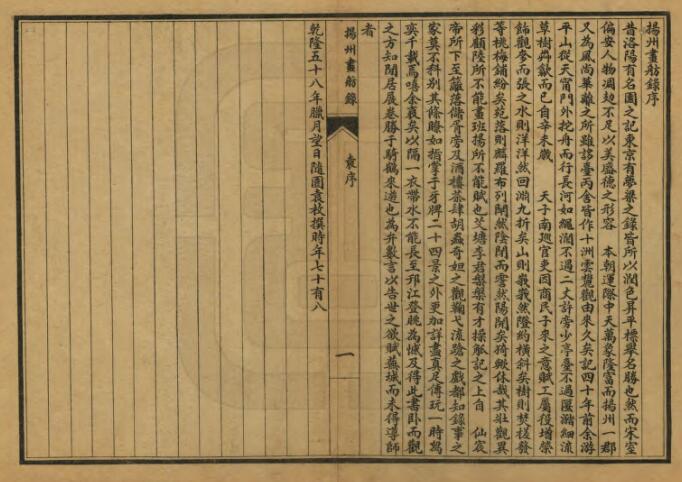 揚州畫舫錄序
昔洛陽有名園之記東京有夢粱之錄皆所以潤色昇平標舉名勝也然而宋室
偏安人物凋謝不足以美盛德之形容　本朝運際中天萬象隆富而揚州一郡
又為風尚華離之所雖諺臺丙舍皆作十洲雲麓觀由來久矣記四十年前余遊
平山從天甯門外挖舟而行長河如繩濶不過二丈許旁少亭臺不過匽瀦細流
草樹卉歙而已自辛未歲　天子南廵官吏因商民子來之意賦工屬役增榮
飾觀奓而張之水則洋洋然回淵九折矣山則峩峩然隥約橫斜矣樹則焚槎發
等桃梅鋪紛矣苑落則鱗羅布列閜然陰閉而霅然陽開矣猗歟休哉其壯觀異
彩顧陸所不能畫班揚所不能賦也艾塘李君槃槃有才操觚記之上自　仙宸
帝所下至籬落儲胥旁及酒樓茶肆胡蟲奇妲之觀鞠弋流蹌之戲都知錄事之
家莫不科別其條瞭如指掌于牙牌二十四景之外更加詳盡真足傳玩一時寫
奕千載焉嘻余衰矣以隔一衣帶水不能長至邗江登眺為憾及得此書卧而觀
之方知閒居展卷勝于騎鶴來遊也為弁數言以告世之欲賦蕪城而未得導師
者
乾隆五十八年臘月望日隨園袁枚撰時年七十有八
揚州畫舫錄
袁序
一